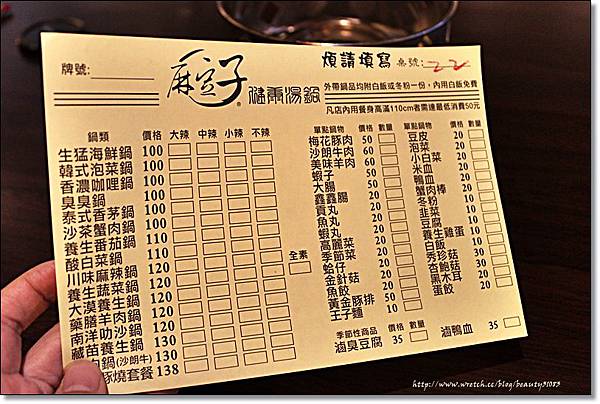 煩請填寫 桌號: 22
牌號:
麻豆子 健康湯鍋
外帶鍋品均附白飯或冬粉一份,內用白飯免費
凡店內用餐身高滿110cm者需達最低消費50元
鍋類 價格 大辣 中辣 小辣 不辣
生猛海鮮鍋 100
韓式泡菜鍋 100
香濃咖哩鍋 100
臭臭鍋 100
泰式香茅鍋 100
沙茶蟹肉鍋 100
養生番茄鍋 110
酸白菜鍋 110
川味麻辣鍋 120
養生蔬菜鍋 120 全素
大漠養生鍋 120
藥膳羊肉鍋 120
南洋叻沙鍋 130
藏苗養生鍋 130
鍋(沙朗牛) 130
豚燒套餐 138
單點鍋物 價格 數量
梅花豚肉 50
沙朗牛肉 60
美味羊肉 60
蝦子 50
大腸
鑫鑫腸 20
貢丸 20
魚丸 20
蝦丸 20
高麗菜
季節菜
蛤仔
金針菇 20
魚餃 20
黃金豚排
王子麵
單點鍋物 價格 數量
豆皮 20
泡菜 20
小白菜
米血 20
鴨血 20
蟹肉棒
冬粉
韭菜
豆腐
養生雞蛋
白飯
秀珍菇
杏鮑菇
黑木耳
蛋餃 20
季節性商品 價格 數量
滷臭豆腐 35
滷鴨血 35
http://www.wretch.cc/blog/beauty31083